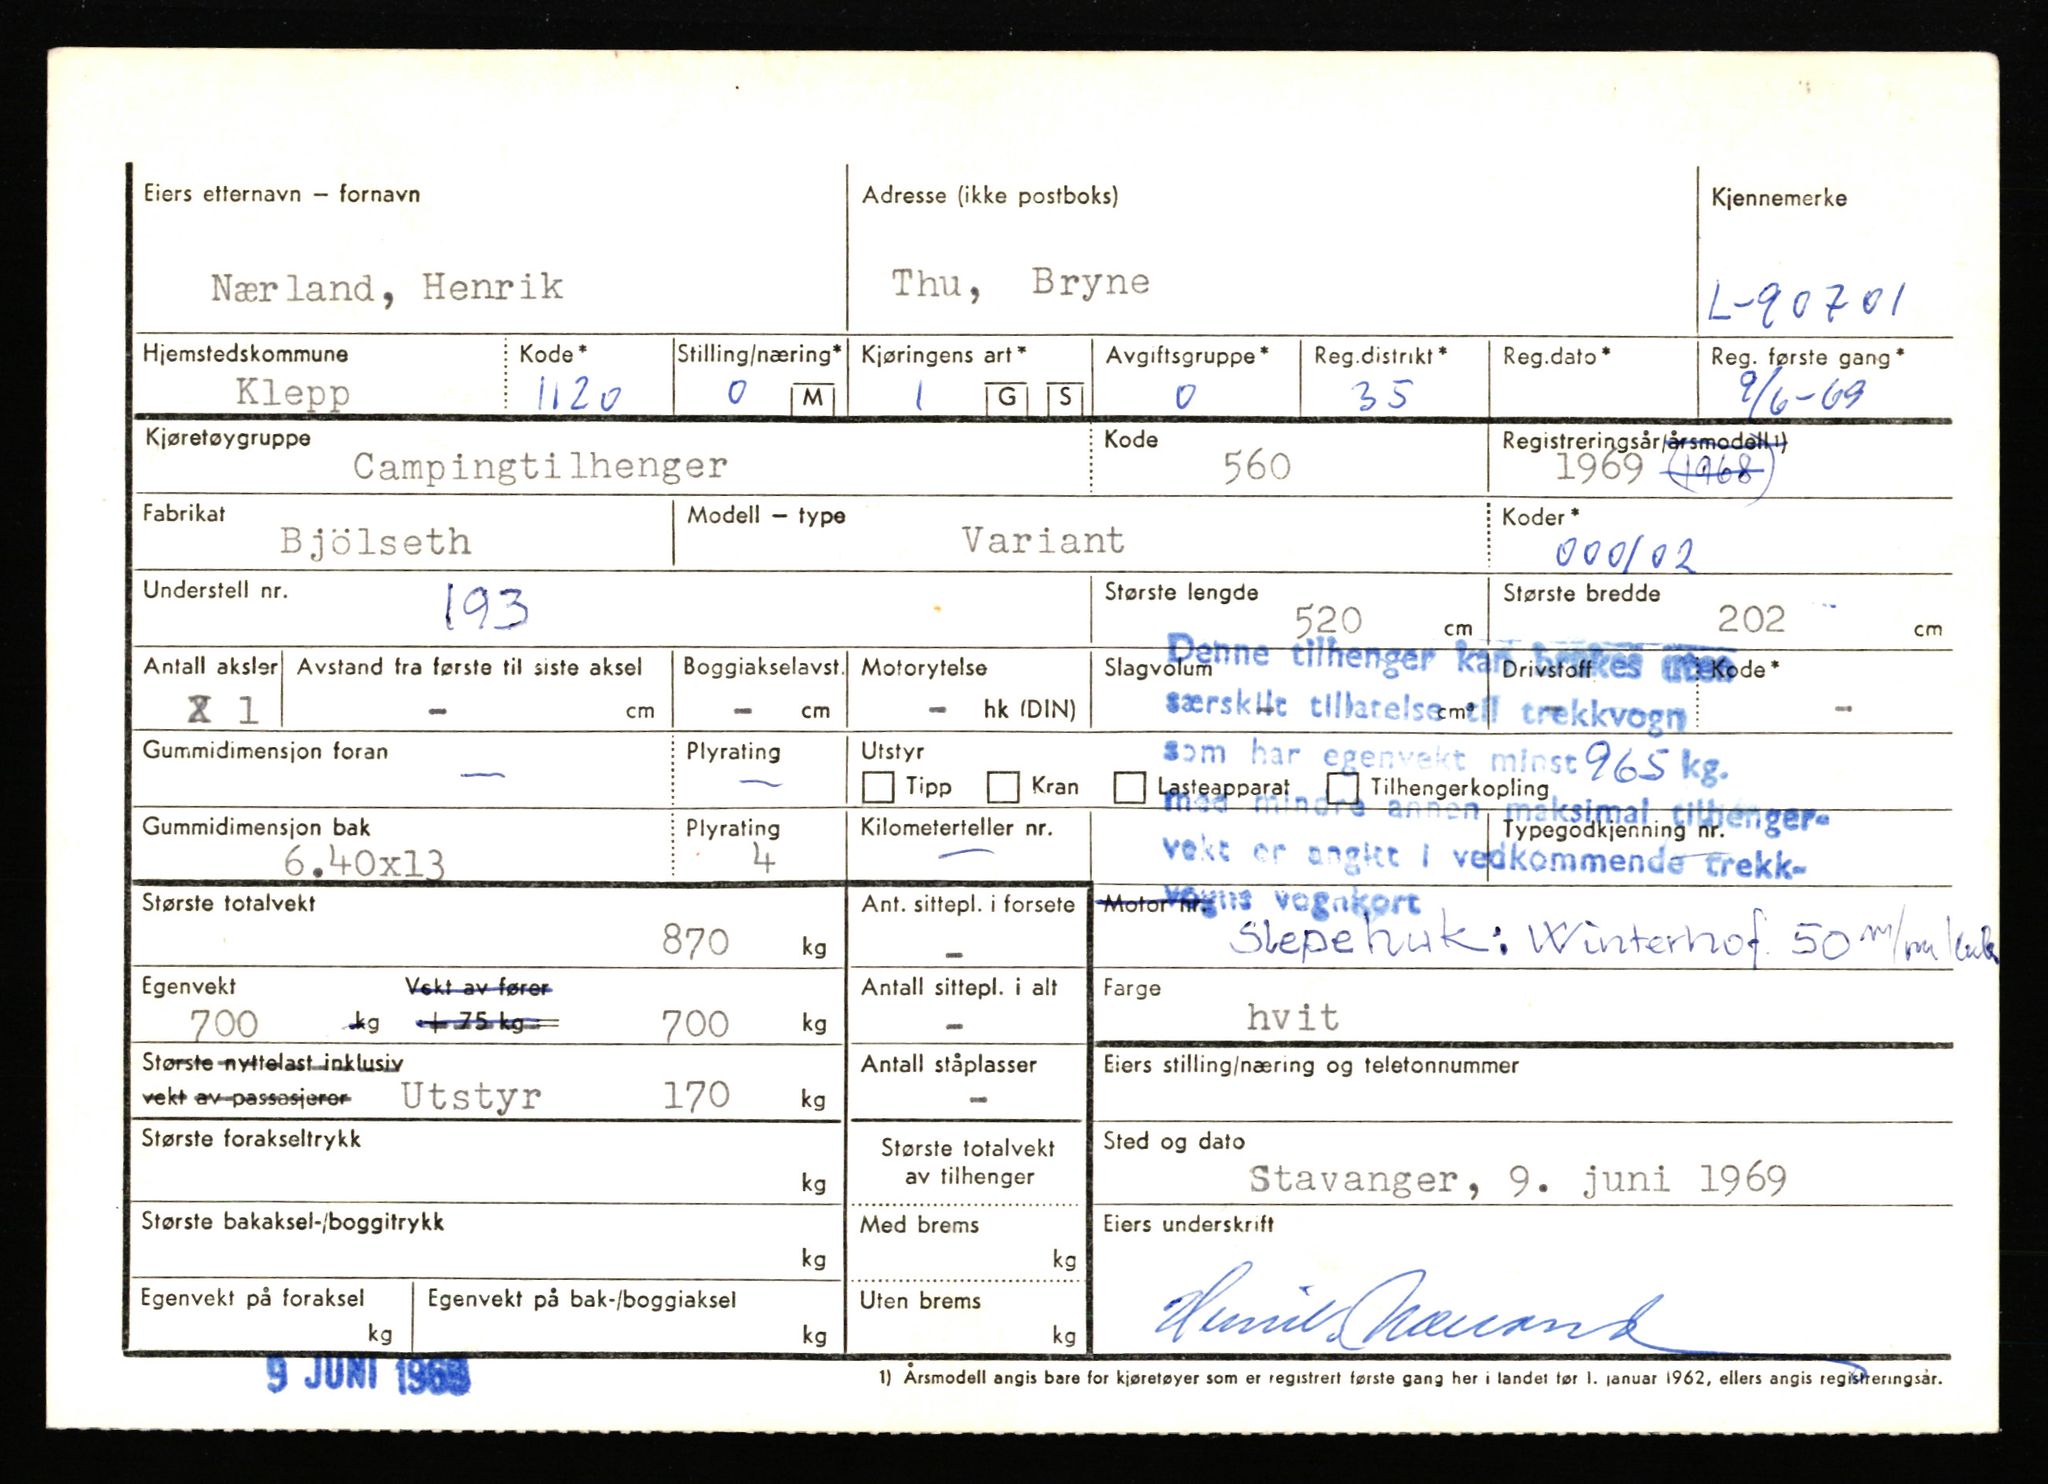 Eiers etternavn – fornavn
Adresse (ikke postboks)
Kjennemerke
Nærland, Henrik
Thu, Bryne
L-90701
Hjemstedskommune
Kode*
Stilling/næring*
Kjøringens art*
Avgiftsgruppe*
Reg.distrikt*
Reg.dato*
Reg. første gang*
Klepp
1120
0 M
1 G S
0
35
9/6-69
Kjøretøygruppe
Kode
Registreringsår/årsmodell 1)
Campingtilhenger
560
1969 (1968)
Fabrikat
Modell – type
Koder*
Bjölseth
Variant
000/02
Understell nr.
Største lengde
Største bredde
193
520 cm
202 cm
Denne tilhenger kan brukes uten
særskilt tillatelse til trekkvogn
som har egenvekt minst 965 kg.
med mindre annen maksimal tilhenger-
vekt er angitt i vedkommende trekk-
vogns vognkort
Antall aksler
Avstand fra første til siste aksel
Boggiakselavst.
Motorytelse
Slagvolum
Drivstoff
Kode*
X 1
- cm
- cm
- hk (DIN)
- cm³
-
-
Gummidimensjon foran
Plyrating
Utstyr
—
—
Tipp
Kran
Lasteapparat
Tilhengerkopling
Gummidimensjon bak
Plyrating
Kilometerteller nr.
Typegodkjenning nr.
6.40x13
4
—
Største totalvekt
Ant. sittepl. i forsete
Motor nr.
870 kg
-
Slepehuk: Winterhof 50 m/m
Egenvekt
Vekt av fører
Antall sittepl. i alt
Farge
700 kg
+ 75 kg =
700 kg
-
hvit
Største nyttelast inklusiv
vekt av passasjerer
Utstyr
170 kg
Antall ståplasser
-
Eiers stilling/næring og telefonnummer
Største forakseltrykk
kg
Største totalvekt
av tilhenger
Sted og dato
Stavanger, 9. juni 1969
Største bakaksel-/boggitrykk
kg
Med brems
kg
Eiers underskrift
Egenvekt på foraksel
kg
Egenvekt på bak-/boggiaksel
kg
Uten brems
kg
Henrik Nærland
9 JUNI 1969
1) Årsmodell angis bare for kjøretøyer som er registrert første gang her i landet før 1. januar 1962, ellers angis registreringsår.